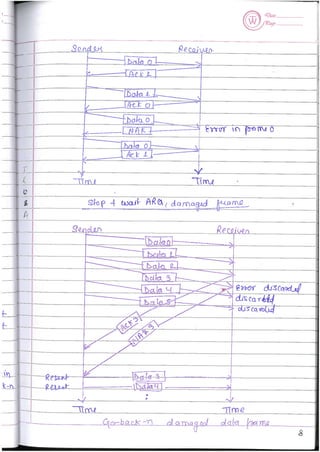 Date
Page
Sender Receiver
Data 0
Ack 1
Data 1
Ack 0
Data 0
NAK Error in frame 0
Data 0
Ack 1
Time Time
Stop & wait ARQ, damaged frame
Sender Receiver
Data 0
Data 1
Data 2
Data 3
Data 4 Error discarded
Data 5 discarded
discarded
Ack 3
NAK 3
Resent Data 3
Resent Data 4
:
Time Time
Go-back-n damaged data frame